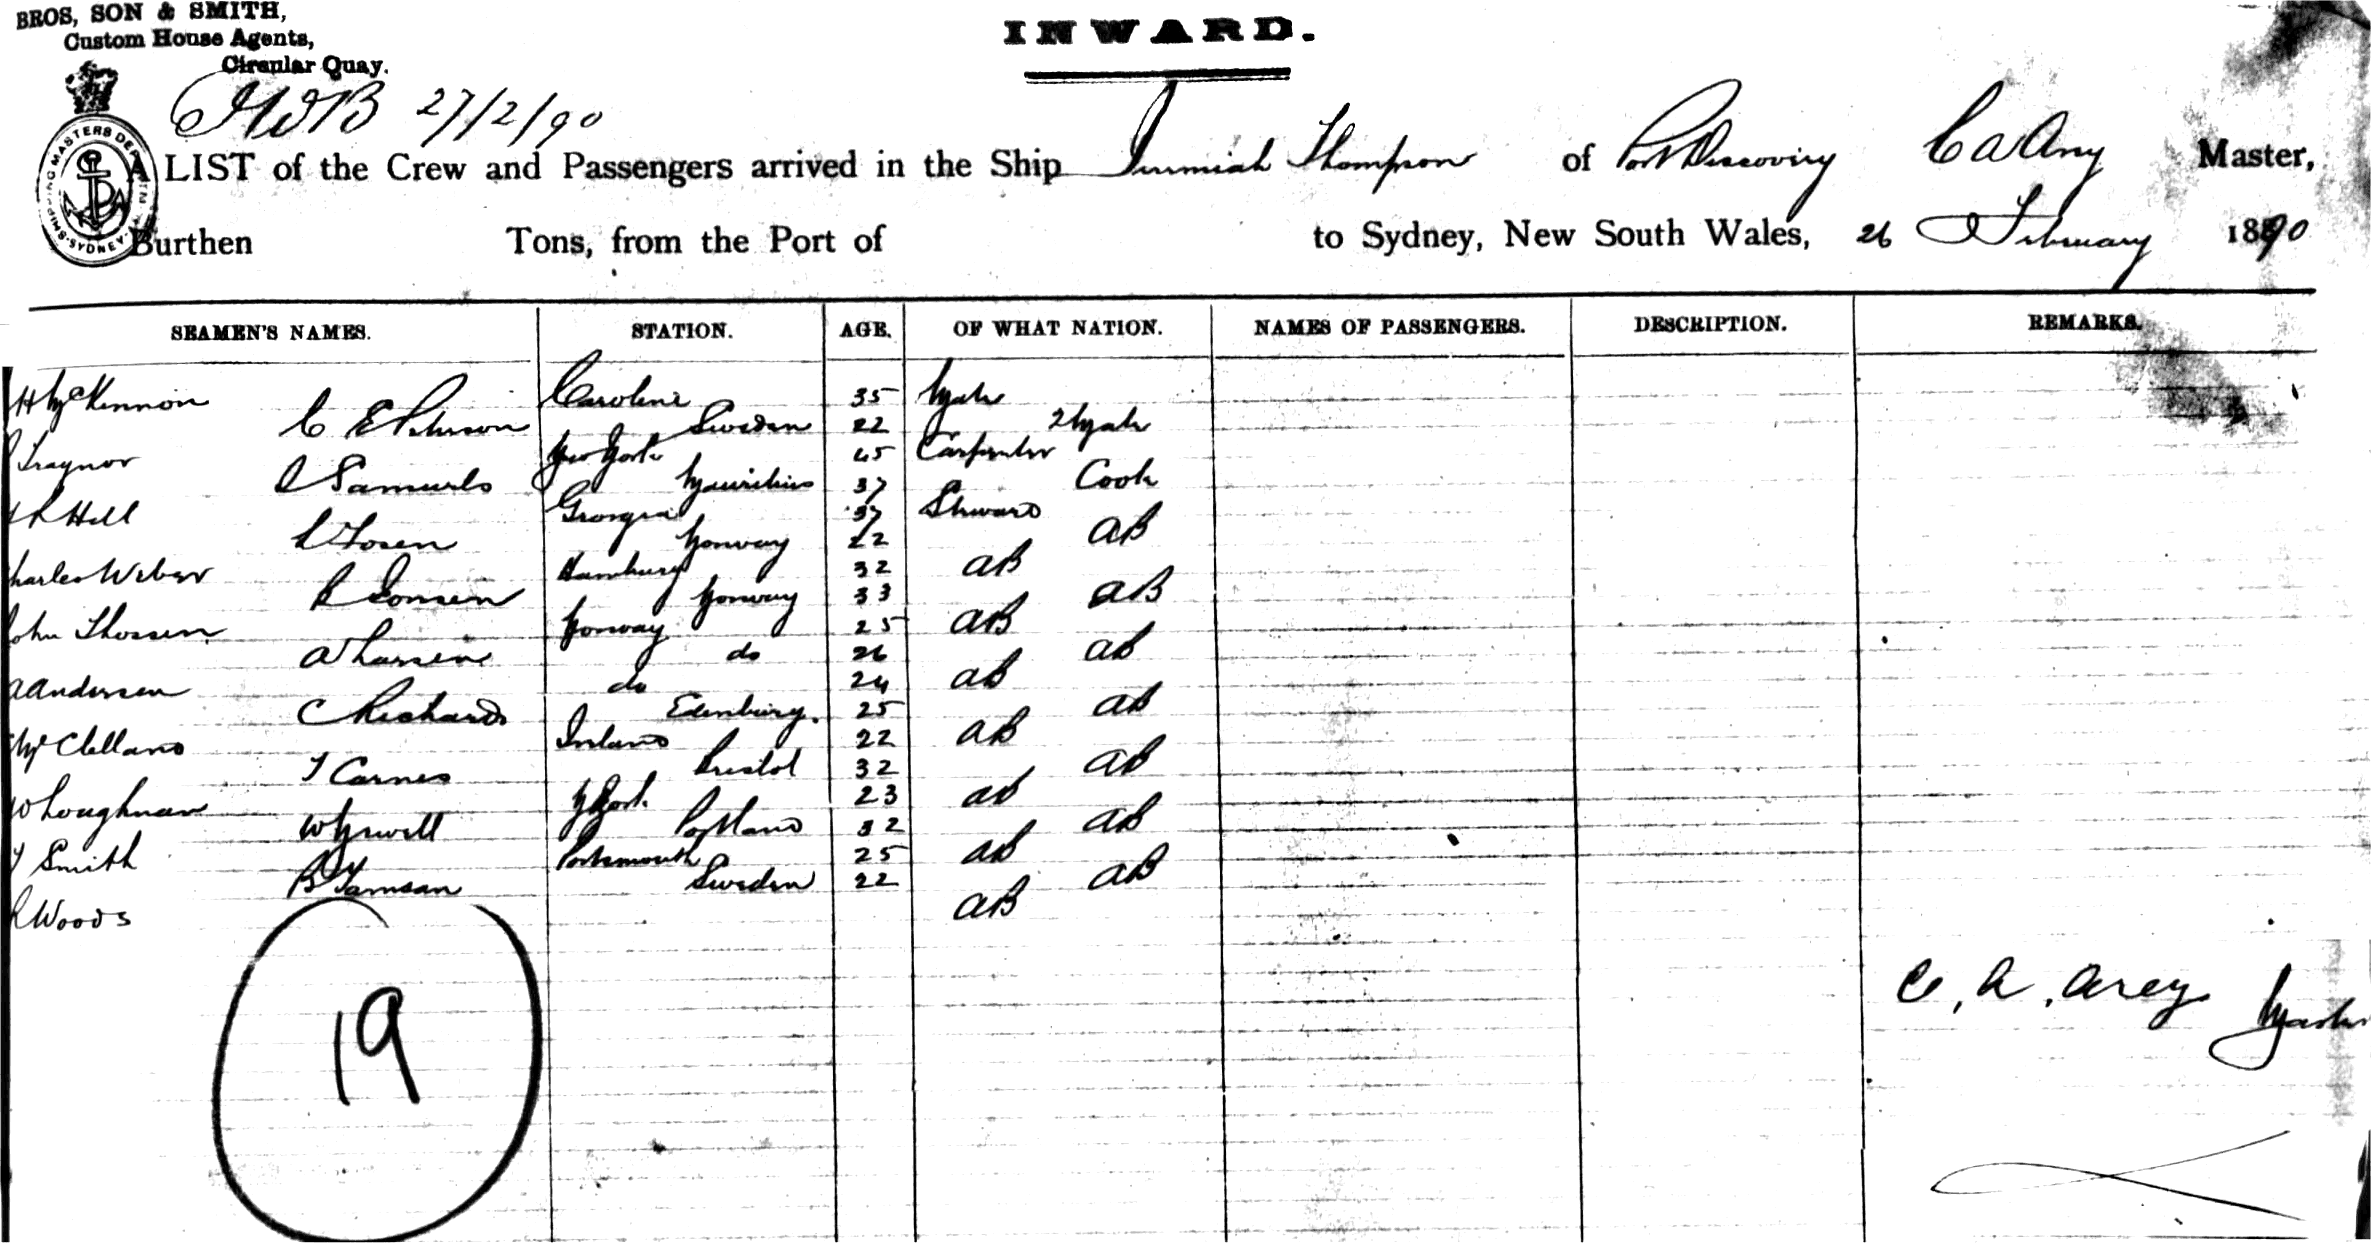 BROS, SON & SMITH,
Custom House Agents,
Circular Quay.
INWARD.
27/2/90
SHIPPING MASTERS DEP SYDNEY
A LIST of the Crew and Passengers arrived in the Ship Jeremiah Thompson of Port Discovery C A Arey Master,
Burthen Tons, from the Port of to Sydney, New South Wales, 26 February 1890
SEAMEN'S NAMES. STATION. AGE. OF WHAT NATION. NAMES OF PASSENGERS. DESCRIPTION. REMARKS.
H McKinnon Caroline 35 Mate
C E Peterson Sweden 22 2 Mate
Traynor New York 45 Carpenter
Samuels Mauritius 37 Cook
Hill Georgia 37 Steward
Tosen Norway 22 AB
harles Weber Hamburg 32 AB
Jonsen Norway 33 AB
John Thossen Norway 25 AB
A Larsen do 26 AB
A Andersen do 24 AB
C Richards Edenburg. 25 AB
McClelland Ireland 22 AB
T Carnes Bristol 32 AB
Loughnan N York 23 AB
W Newell Portland 32 AB
Smith Portsmouth 25 AB
B Tamsan Sweden 22 AB
R Woods AB
19
C. A. Arey Master